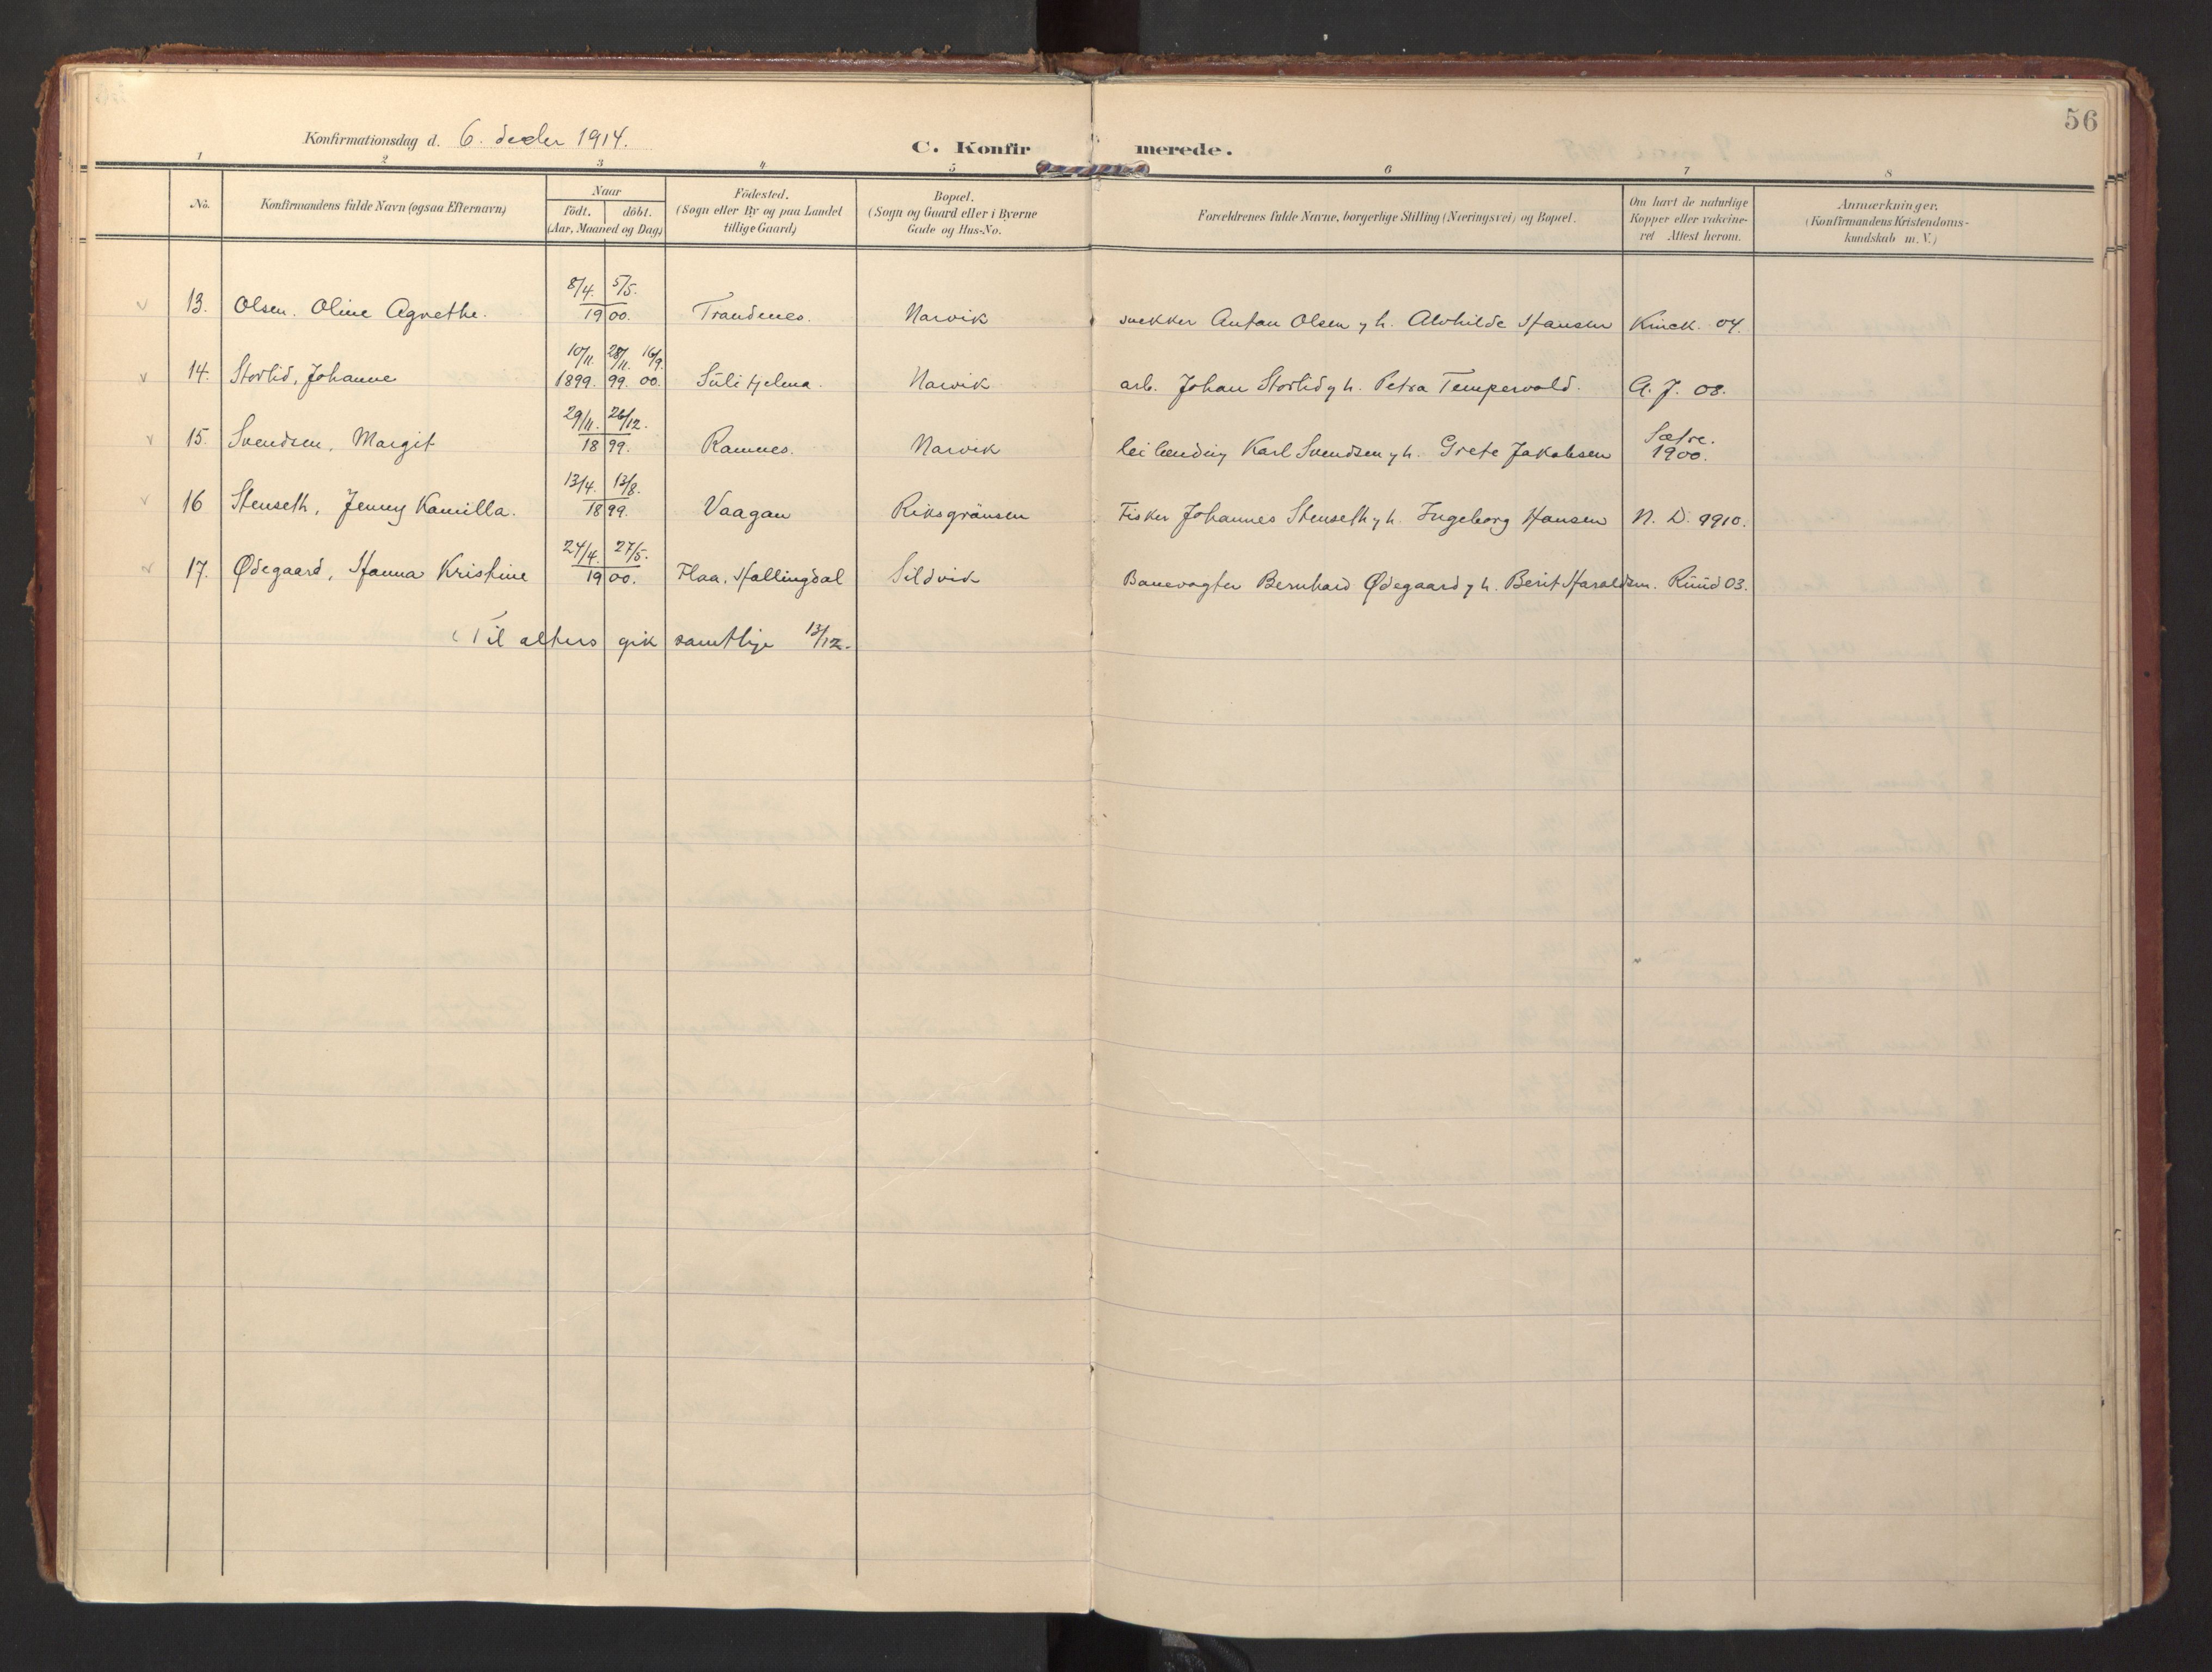 56
Konfirmationsdag d. 6. decbr 1914.
C. Konfirmerede.
1 2 3 4 5 6 7 8
No.
Konfirmandens fulde Navn (ogsaa Efternavn)
Naar
födt. döbt.
(Aar, Maaned og Dag)
Födested.
(Sogn eller By og paa Landet
tillige Gaard)
Bopæl.
(Sogn og Gaard eller i Byerne
Gade og Hus-No.
Forældrenes fulde Navne, borgerlige Stilling (Næringsvei) og Bopæl.
Om havt de naturlige
Kopper eller vakcine-
ret Attest herom.
Anmærkninger.
(Konfirmandens Kristendoms-
kundskab m. V.)
8/4. 5/5.
v 13. Olsen. Oline Agnethe. 1900. Trandenes. Narvik snekker Anton Olsen y h. Alvhilde Hansen Kinck. 04.
10/11. 28/11. 16/9.
v 14. Storlid, Johanne 1899. 99. 00. Sulitjelma. Narvik arb. Johan Storlid y h. Petra Tempervold. A. J. 08.
29/11. 26/12.
v 15. Svendsen, Margit 1899. Ramnes. Narvik leilænding Karl Svendsen y h. Grete Jakobsen Sætre. 1900.
13/4. 13/8.
v 16 Stenseth, Jenny Kamilla. 1899. Vaagan Riksgränsen Fisker Johannes Stenseth y h. Ingeborg Hansen N. D. 1910.
24/4. 27/5.
v 17. Ødegaard, Hanna Kristine 1900. Flaa, Hallingdal Sildvik Banevogter Bernhard Ødegaard y h. Berit Haraldsen. Ruud 03.
Til alters gik samtlige 13/12.